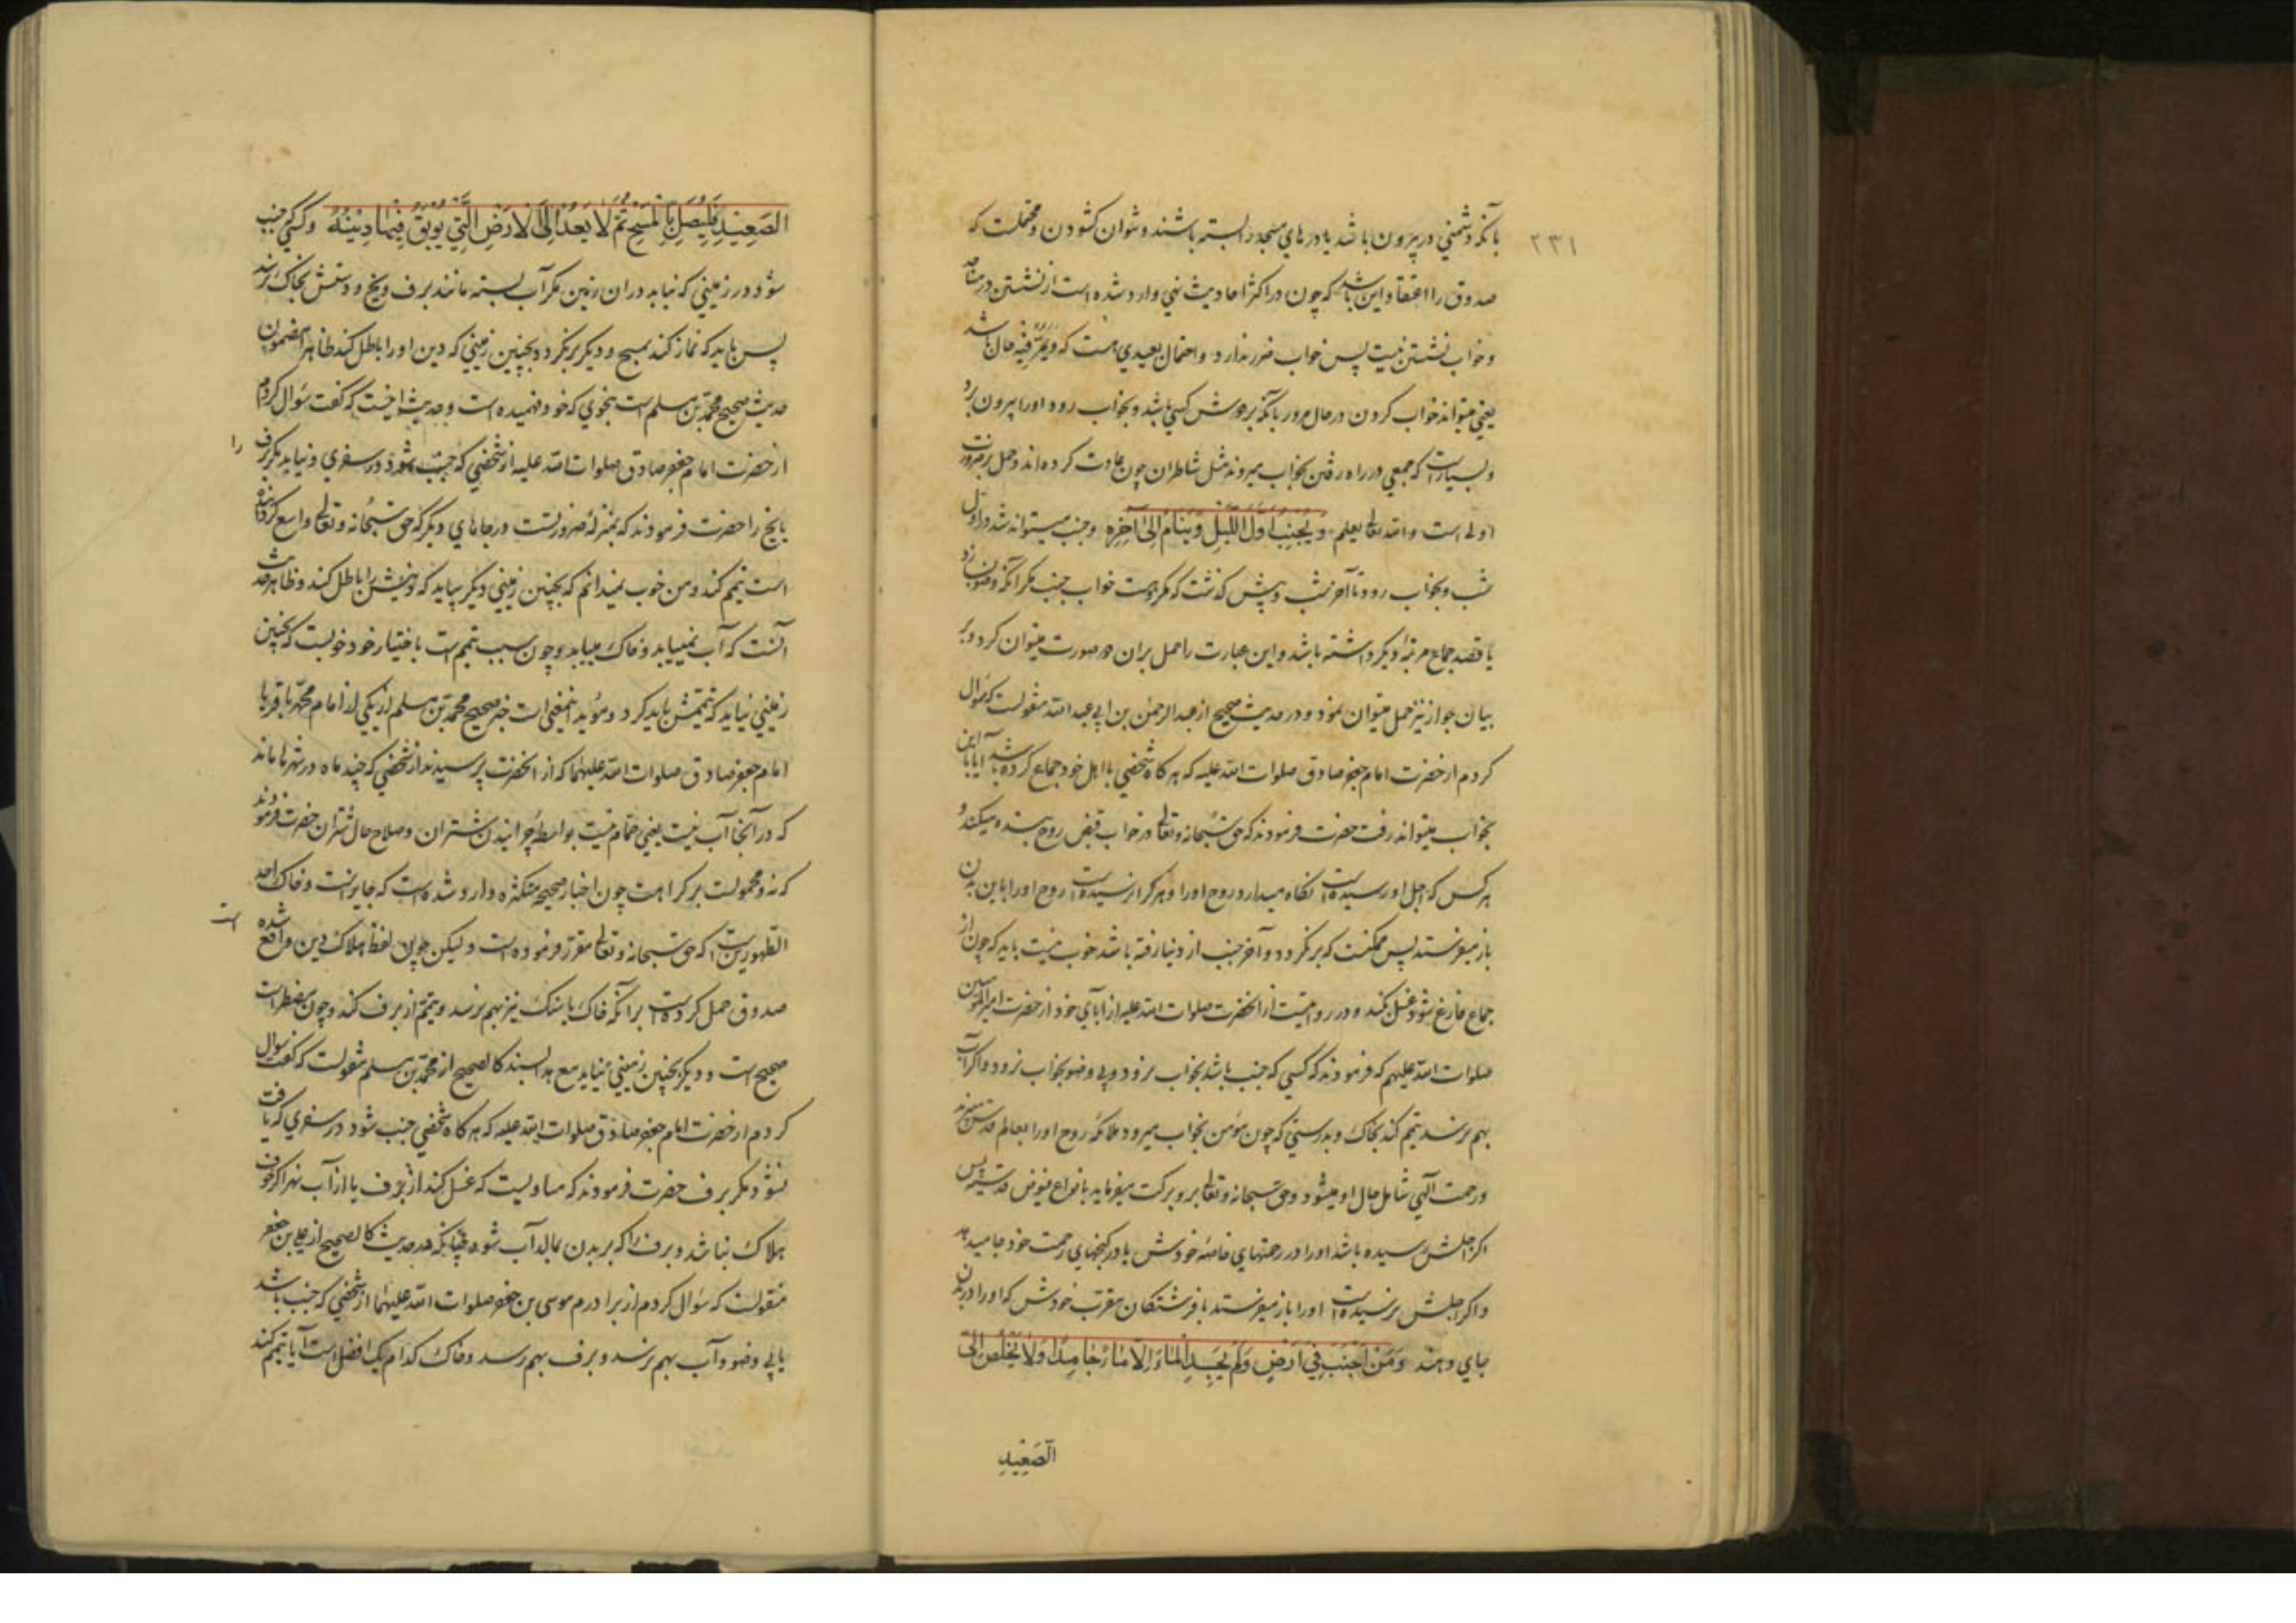 ٢٣١
بآنکه دشمنی در بیرون باشد یا درهای مسجد را بسته باشند و نتوان کشودن و محتملست که
صدوق را اعتقاد این باشد که چون در اکثر احادیث نهی وارد شده است از نشستن در مساجد
و خواب نشستن نیست پس خواب ضرر ندارد و احتمال بعیدی هست که ویمر فیه حال باشد
یعنی میتواند خواب کردن در حال مرور بآنکه بر دوش کسی باشد و بخواب رود او را بیرون برد
و بسیارست که جمعی در راه رفتن بخواب میروند مثل شاطران چون عادت کرده اند و حمل بر ضرورت
اولی است و الله تعالی یعلم وَیُجْنِبُ اَوَّلَ اللَّیْلِ وَیَنَامُ اِلیٰ آخِرِهِ و جنب میتواند شد در اول
شب و بخواب رود تا آخر شب و پیش گذشت که مکروهست خواب جنب مکر آنکه وضو بسازد
یا قصد جماع مرتبهٔ دیکر داشته باشد و این عبارت را حمل بران دو صورت میتوان کرد و بر
بیان جواز نیز حمل میتوان نمود و در حدیث صحیح از عبد الرحمٰن بن ابی عبد الله منقولست که سؤال
کردم از حضرت امام جعفر صادق صلوات الله علیه که هرکاه شخصی با اهل خود جماع کرده باشد آیا با این
بخواب میتواند رفت حضرت فرمودند که حق سبحانه و تعالی در خواب قبض روح بنده میکند و
هر کس که اجل او رسیده است نکاه میدارد روح او را و هر کرا نرسیده است روح او را باین بدن
باز میفرستد پس ممکنست که برنکردد و آخر جنب از دنیا رفته باشد خوب نیست باید که چون از
جماع فارغ شود غسل بکند و در روایتست از آنحضرت صلوات الله علیه از آبای خود از حضرت امیر المؤمنین
صلوات الله علیهم که فرمودند که کسی که جنب باشد بخواب نرود و بی وضو بخواب نرود و اکر آب
بهم نرسد تیمم کند بخاک و بدرستی که چون مؤمن بخواب میرود ملائکه روح او را بعالم قدس میبرند
و رحمت آلهی شامل حال او میشود و حق سبحانه و تعالی برو برکت میفرماید بانواع فیوض قدسیه پس
اکر اجلش رسیده باشد او را در رحمتهای خاصهٔ خودش یا در کنجهای رحمت خود جا میدهد
و اکر اجلش نرسیده است او را باز میفرستد با فرشتکان مقرب خودش که او را در بدن
جای دهند وَمَنْ اَجْنَبَ فِی اَرْضٍ وَلَمْ یَجِدِ الْمَاءَ اِلاّ مَاءً جَامِداً وَلاَ یَخْلُصُ اِلَی
الصَّعِیْدِ
الصَعِیْدِ فَلْیُصَلِّ بِالْمَسْحِ ثُمَّ لاٰ یَعُدْ اِلَی الاَرْضِ الَّتِی یُوبَقُ فِیهَا دِیْنُهُ و کسی که جنب
شود در زمینی که نیابد دران زمین مکر آب بسته مانند برف و یخ و دستش بخاک نرسد
پس باید که نماز کند بمسح و دیکر برنکردد بچنین زمینی که دین او را باطل کند ظاهرا مضمون
حدیث صحیح محمد بن مسلم است بنحوی که خود فهمیده است و حدیث اینست که کفت سؤال کردم
از حضرت امام جعفر صادق صلوات الله علیه از شخصی که جنب شود در سفری و نیابد مکر برف را
یا یخ را حضرت فرمودند که بمنزلهٔ ضرورتست در جاهای دیکر که حق سبحانه و تعالی واسع کردانیده
است تیمم کند و من خوب نمیدانم که بچنین زمینی دیکر بیاید که دینش را باطل کند و ظاهر حدیث
آنست که آب نمییابد و خاک مییابد و چون سبب تیمم است باختیار خود خوب نیست که بچنین
زمینی بیاید که تیممش باید کرد و مؤید اینمعنی است خبر صحیح محمد بن مسلم از یکی از امام محمد باقر یا
امام جعفر صادق صلوات الله علیهما که از آنحضرت پرسیدند از شخصی که چند ماه در شهرها ماند
که در آنجا آب نیست یعنی حمام نیست بواسطهٔ چرانیدن شتران و صلاح حال شتران حضرت فرمودند
که نه و محمولست بر کراهت چون اخبار صحیحه متکثره وارد شده است که جایزست و خاک احد
الطهورین است که حق سبحانه و تعالی مقرر فرموده است و لیکن چون لفظ هلاک دین واقع شده است
صدوق حمل کرده است بر آنکه خاک یا سنک نیز بهم نرسد و تیمم از برف کند و چون مضطر است
صحیح است و دیکر بچنین زمینی نیاید مع هذا بسند کالصحیح از محمد بن مسلم منقولست که کفت سؤال
کردم از حضرت امام جعفر صادق صلوات الله علیه که هرکاه شخصی جنب شود در سفری که یافت
نشود مکر برف حضرت فرمودند که مساویست که غسل کند از برف یا از آب نهر اکر خوف
هلاک نباشد و برف را که بر بدن بمالد آب شود چنانکه در حدیث کالصحیح از علی بن جعفر
منقولست که سؤال کردم از برادرم موسی بن جعفر صلوات الله علیهما از شخصی که جنب باشد
یا بی وضو و آب بهم نرسد و برف بهم رسد و خاک کدام یک افضل است آیا تیمم کند